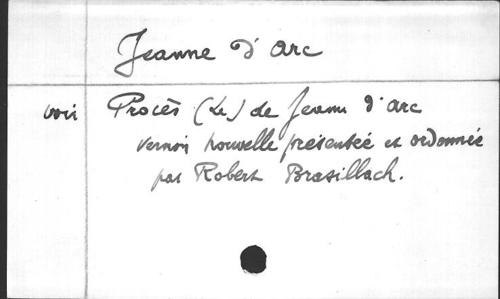 Jeanne d'Arc
voir Procès (Le) de Jeanne d'Arc
version nouvelle présentée et ordonnée
par Robert Brasillach.